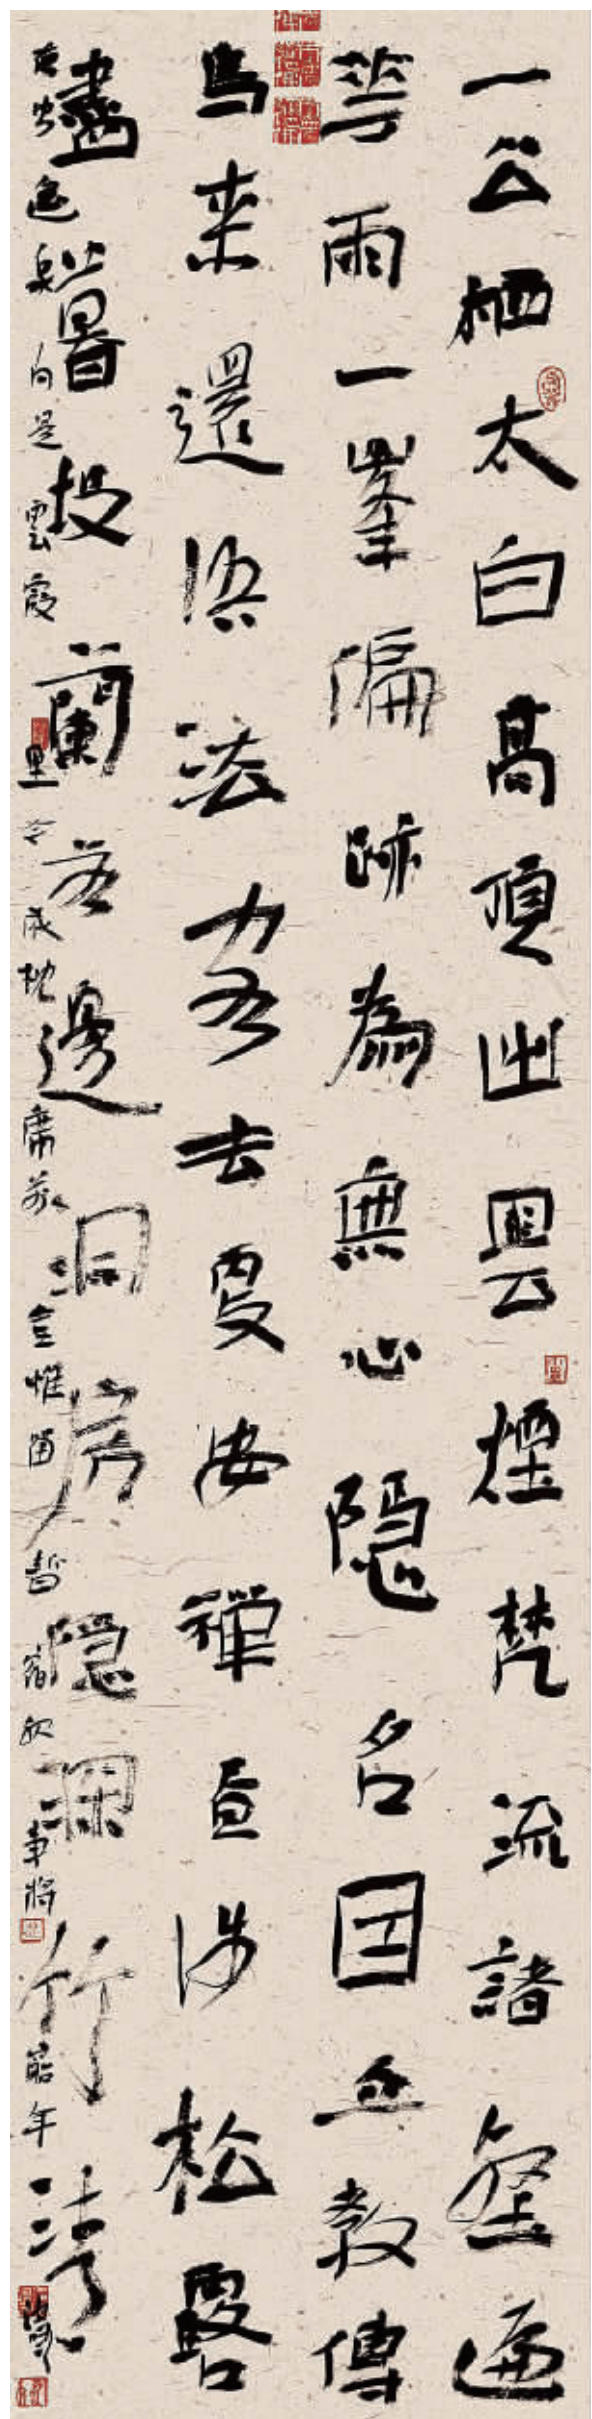 一公栖太白高頂出雲煙梵流諸壑遍
花雨一峯偏跡為無心隱名因立教傳
鳥來還語法客去更安禪晝涉松露
盡暮投蘭若邊洞房隱深竹清
夜聞遙泉向是雲霞里今成枕席前豈惟留暫宿服事將窮年